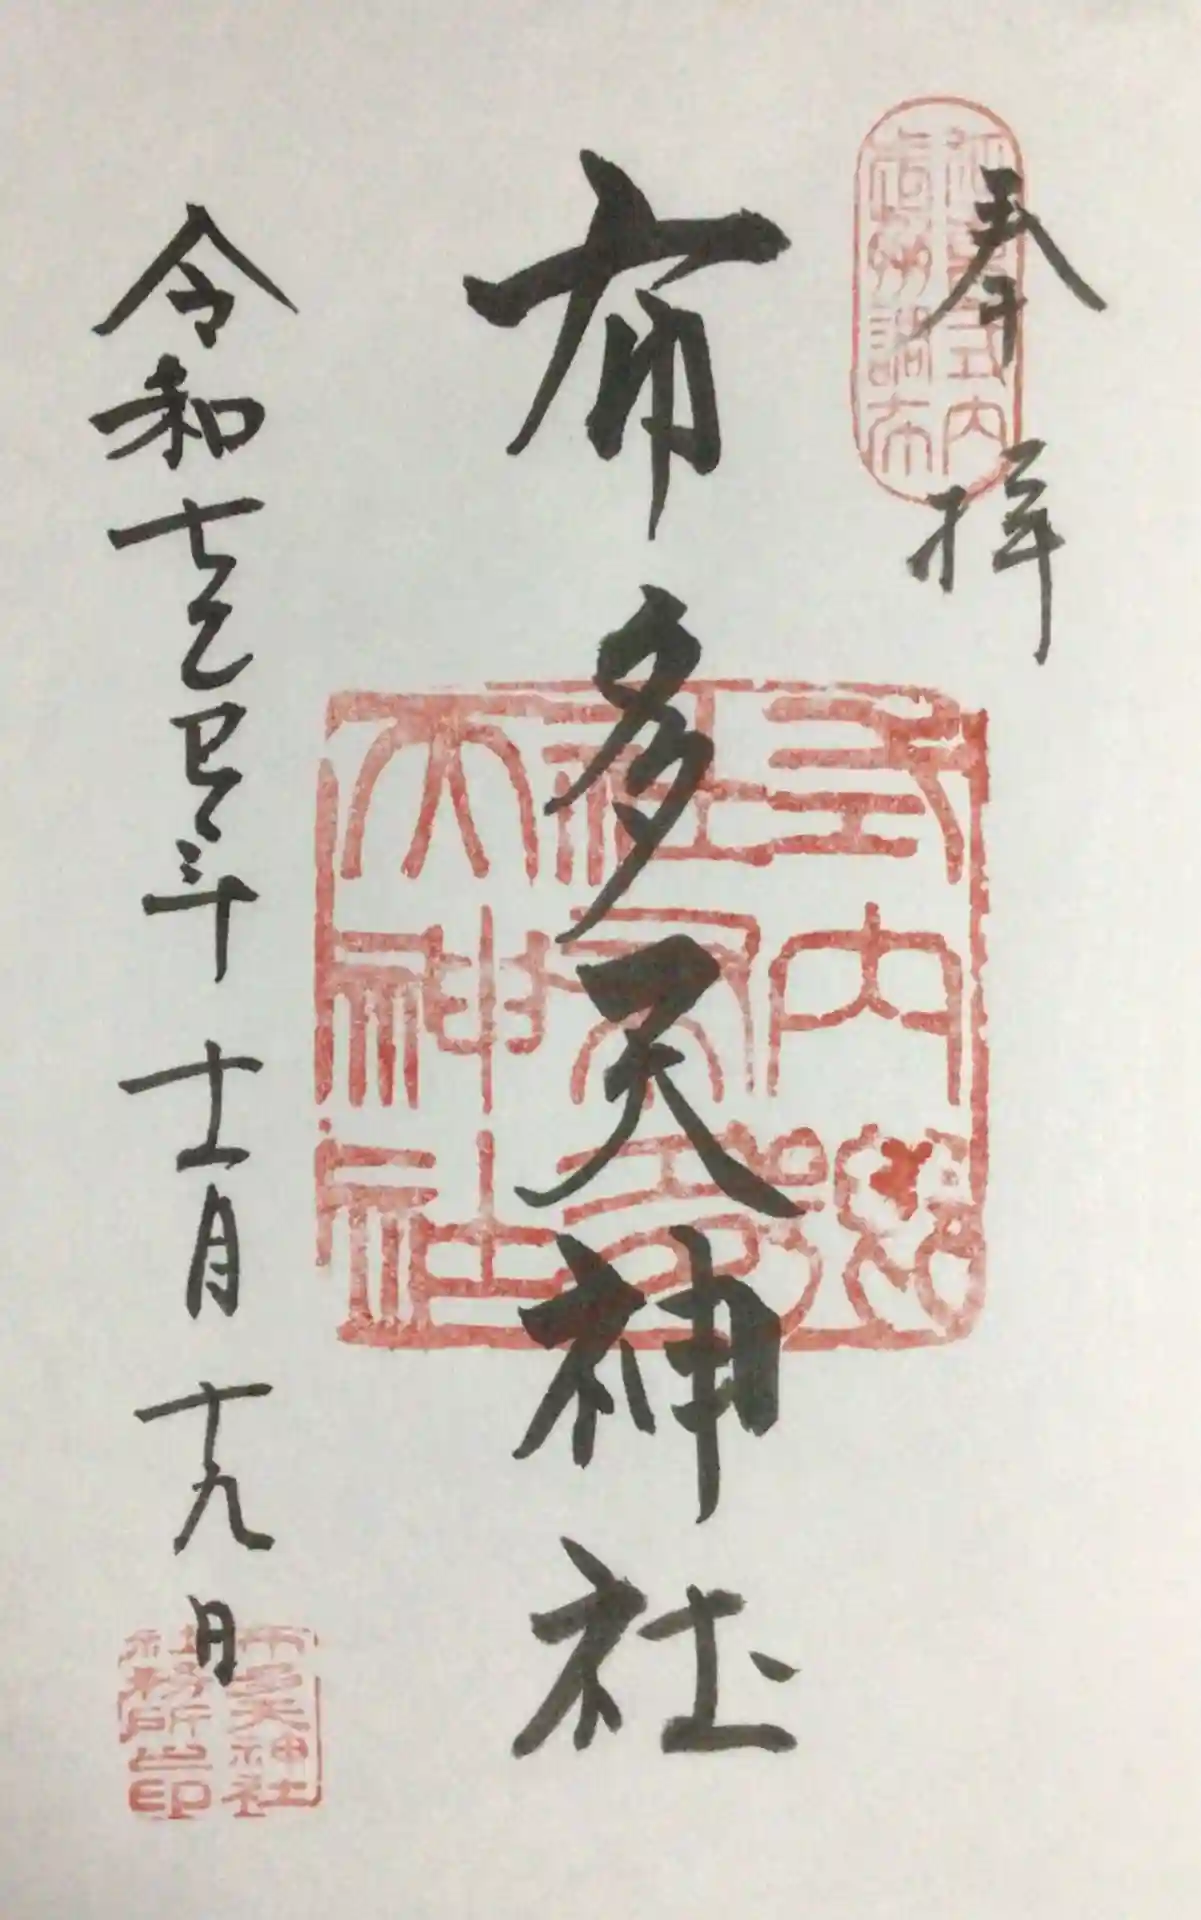 奉拝
延喜式内
武州調布
布多天神社
式内郷
社布多
天神社
令和七乙巳年十一月十九日
布多天神社
社務所之印